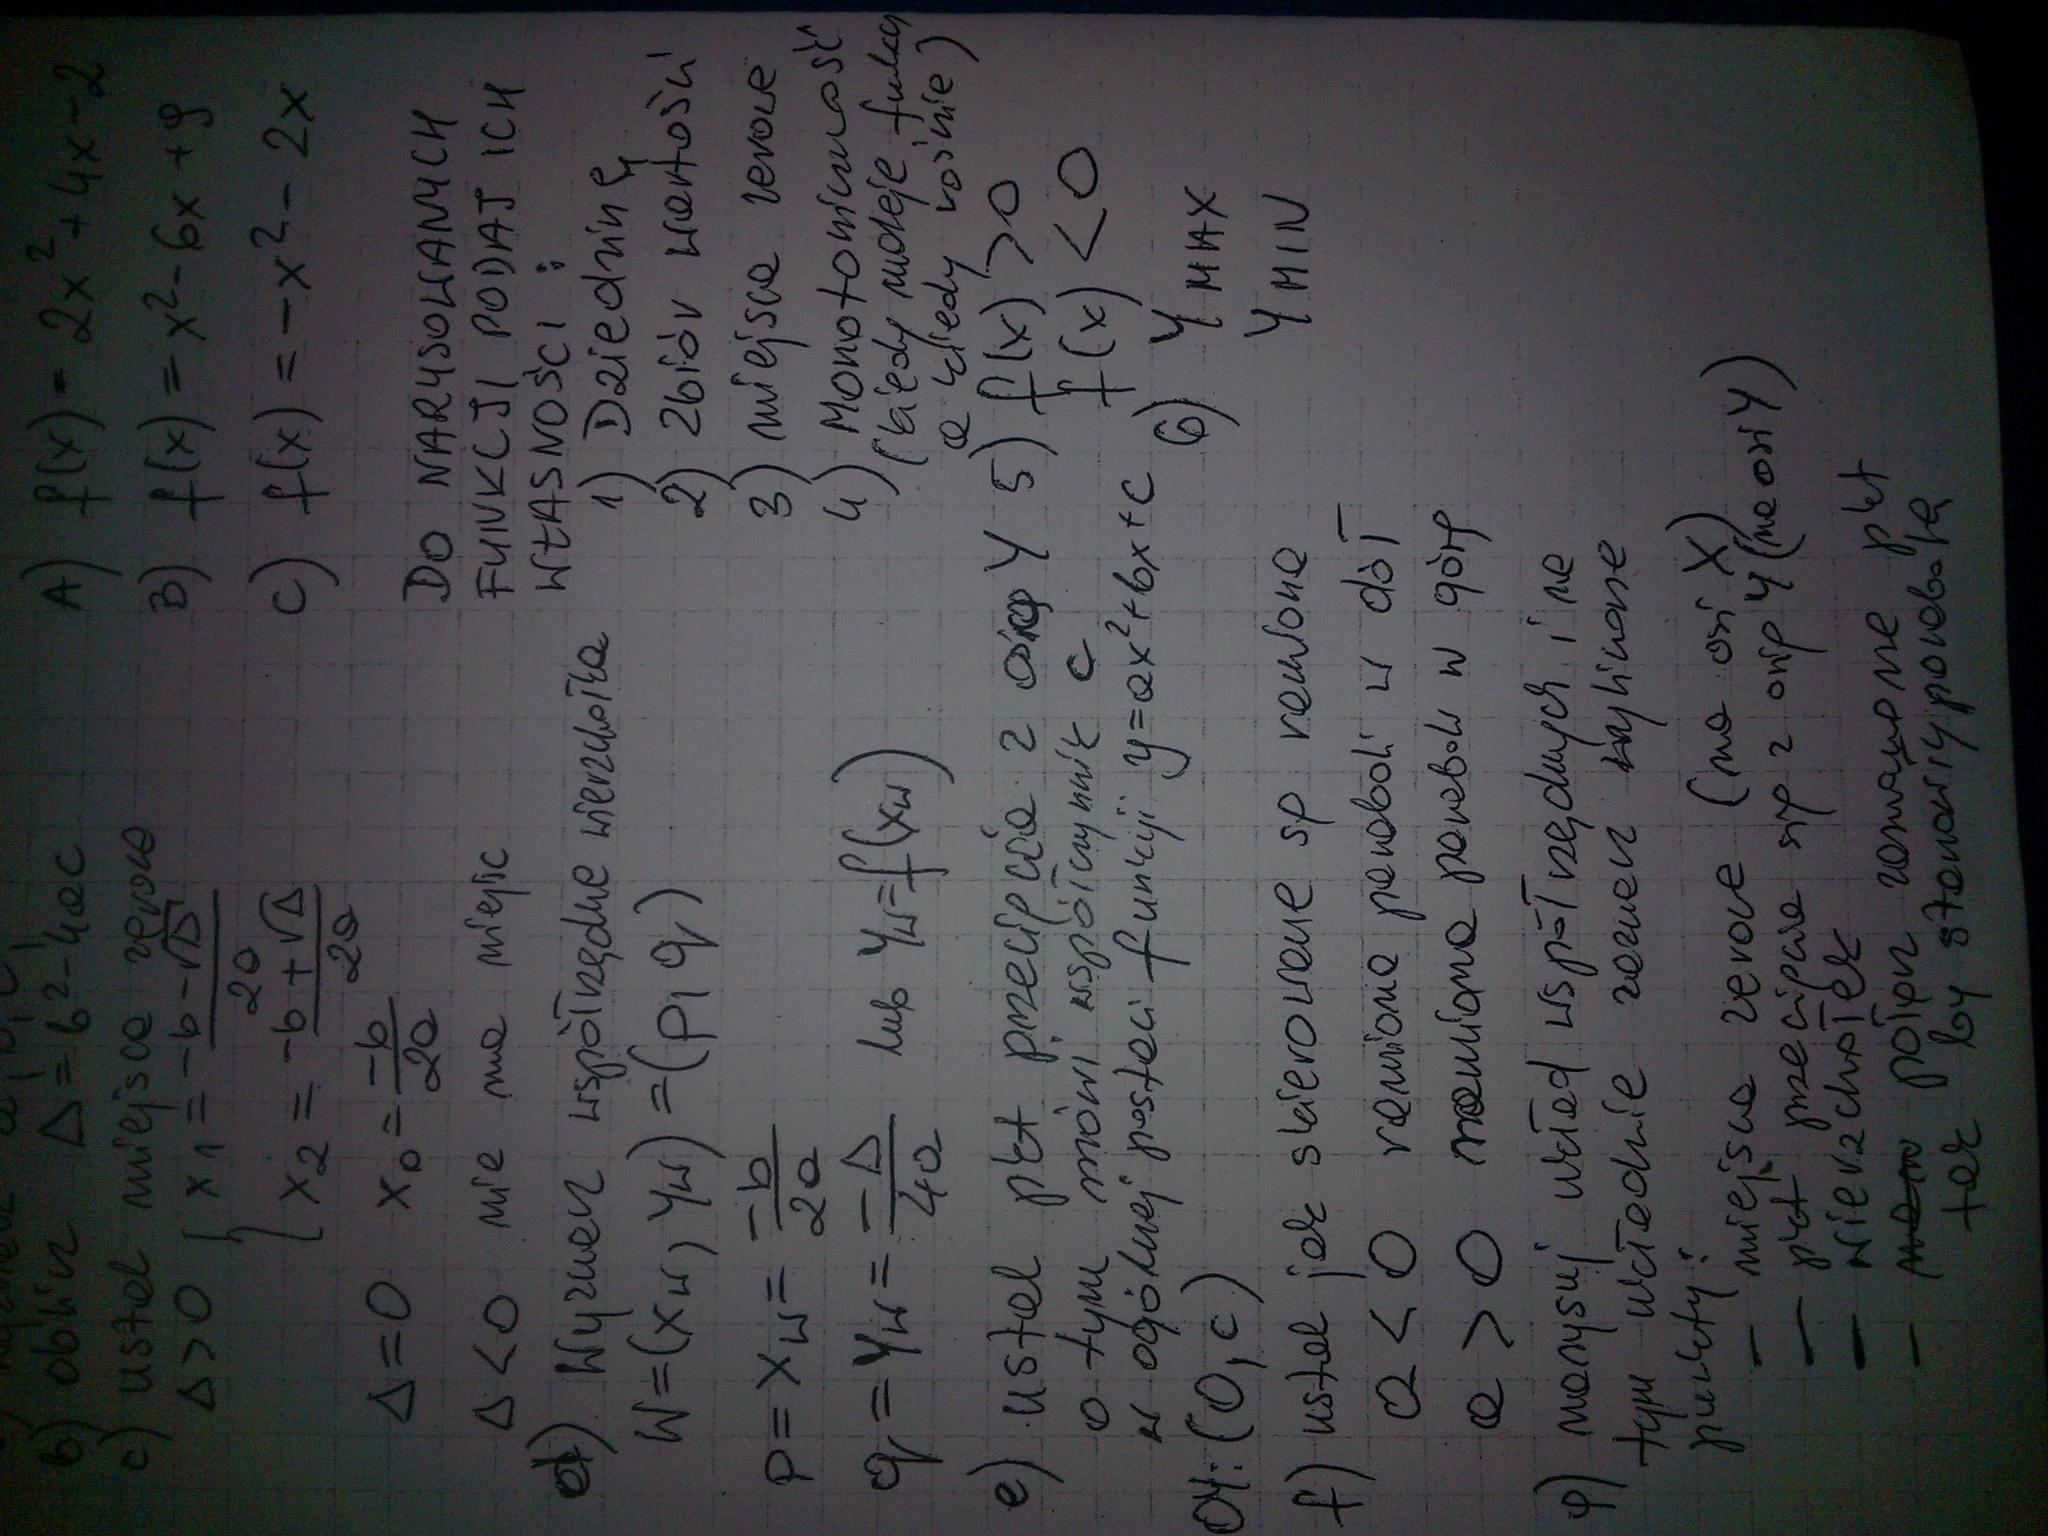 b) oblicz Δ = b² - 4ac
c) ustal miejsca zerowe
Δ > 0 { x₁ = (-b - √Δ) / 2a
x₂ = (-b + √Δ) / 2a
Δ = 0 x₀ = -b / 2a
Δ < 0 nie ma miejsc
d) Wyznacz współrzędne wierzchołka
W = (xw, yw) = (p, q)
p = xw = -b / 2a
q = yw = -Δ / 4a lub yw = f(xw)
e) ustal pkt przecięcia z osią Y
o tym mówi współczynnik c
w ogólnej postaci funkcji y = ax² + bx + c
OY: (0, c)
f) ustal jak skierowane są ramiona
a < 0 ramiona paraboli w dół
a > 0 ramiona paraboli w górę
narysuj układ współrzędnych i na
tym układzie zaznacz wyliczone
punkty:
- miejsca zerowe (na osi X)
- pkt przecięcia się z osią Y (na osi Y)
- wierzchołek
- połącz zaznaczone pkt
tak by stanowiły parabolę
A) f(x) = 2x² + 4x - 2
B) f(x) = x² - 6x + 9
C) f(x) = -x² - 2x
DO NARYSOWANYCH
FUNKCJI PODAJ ICH
WŁASNOŚCI:
1) Dziedzinę
2) zbiór wartości
3) miejsca zerowe
4) Monotoniczność
(kiedy maleje funkcja
a kiedy rośnie)
5) f(x) > 0
f(x) < 0
6) Y MAX
Y MIN